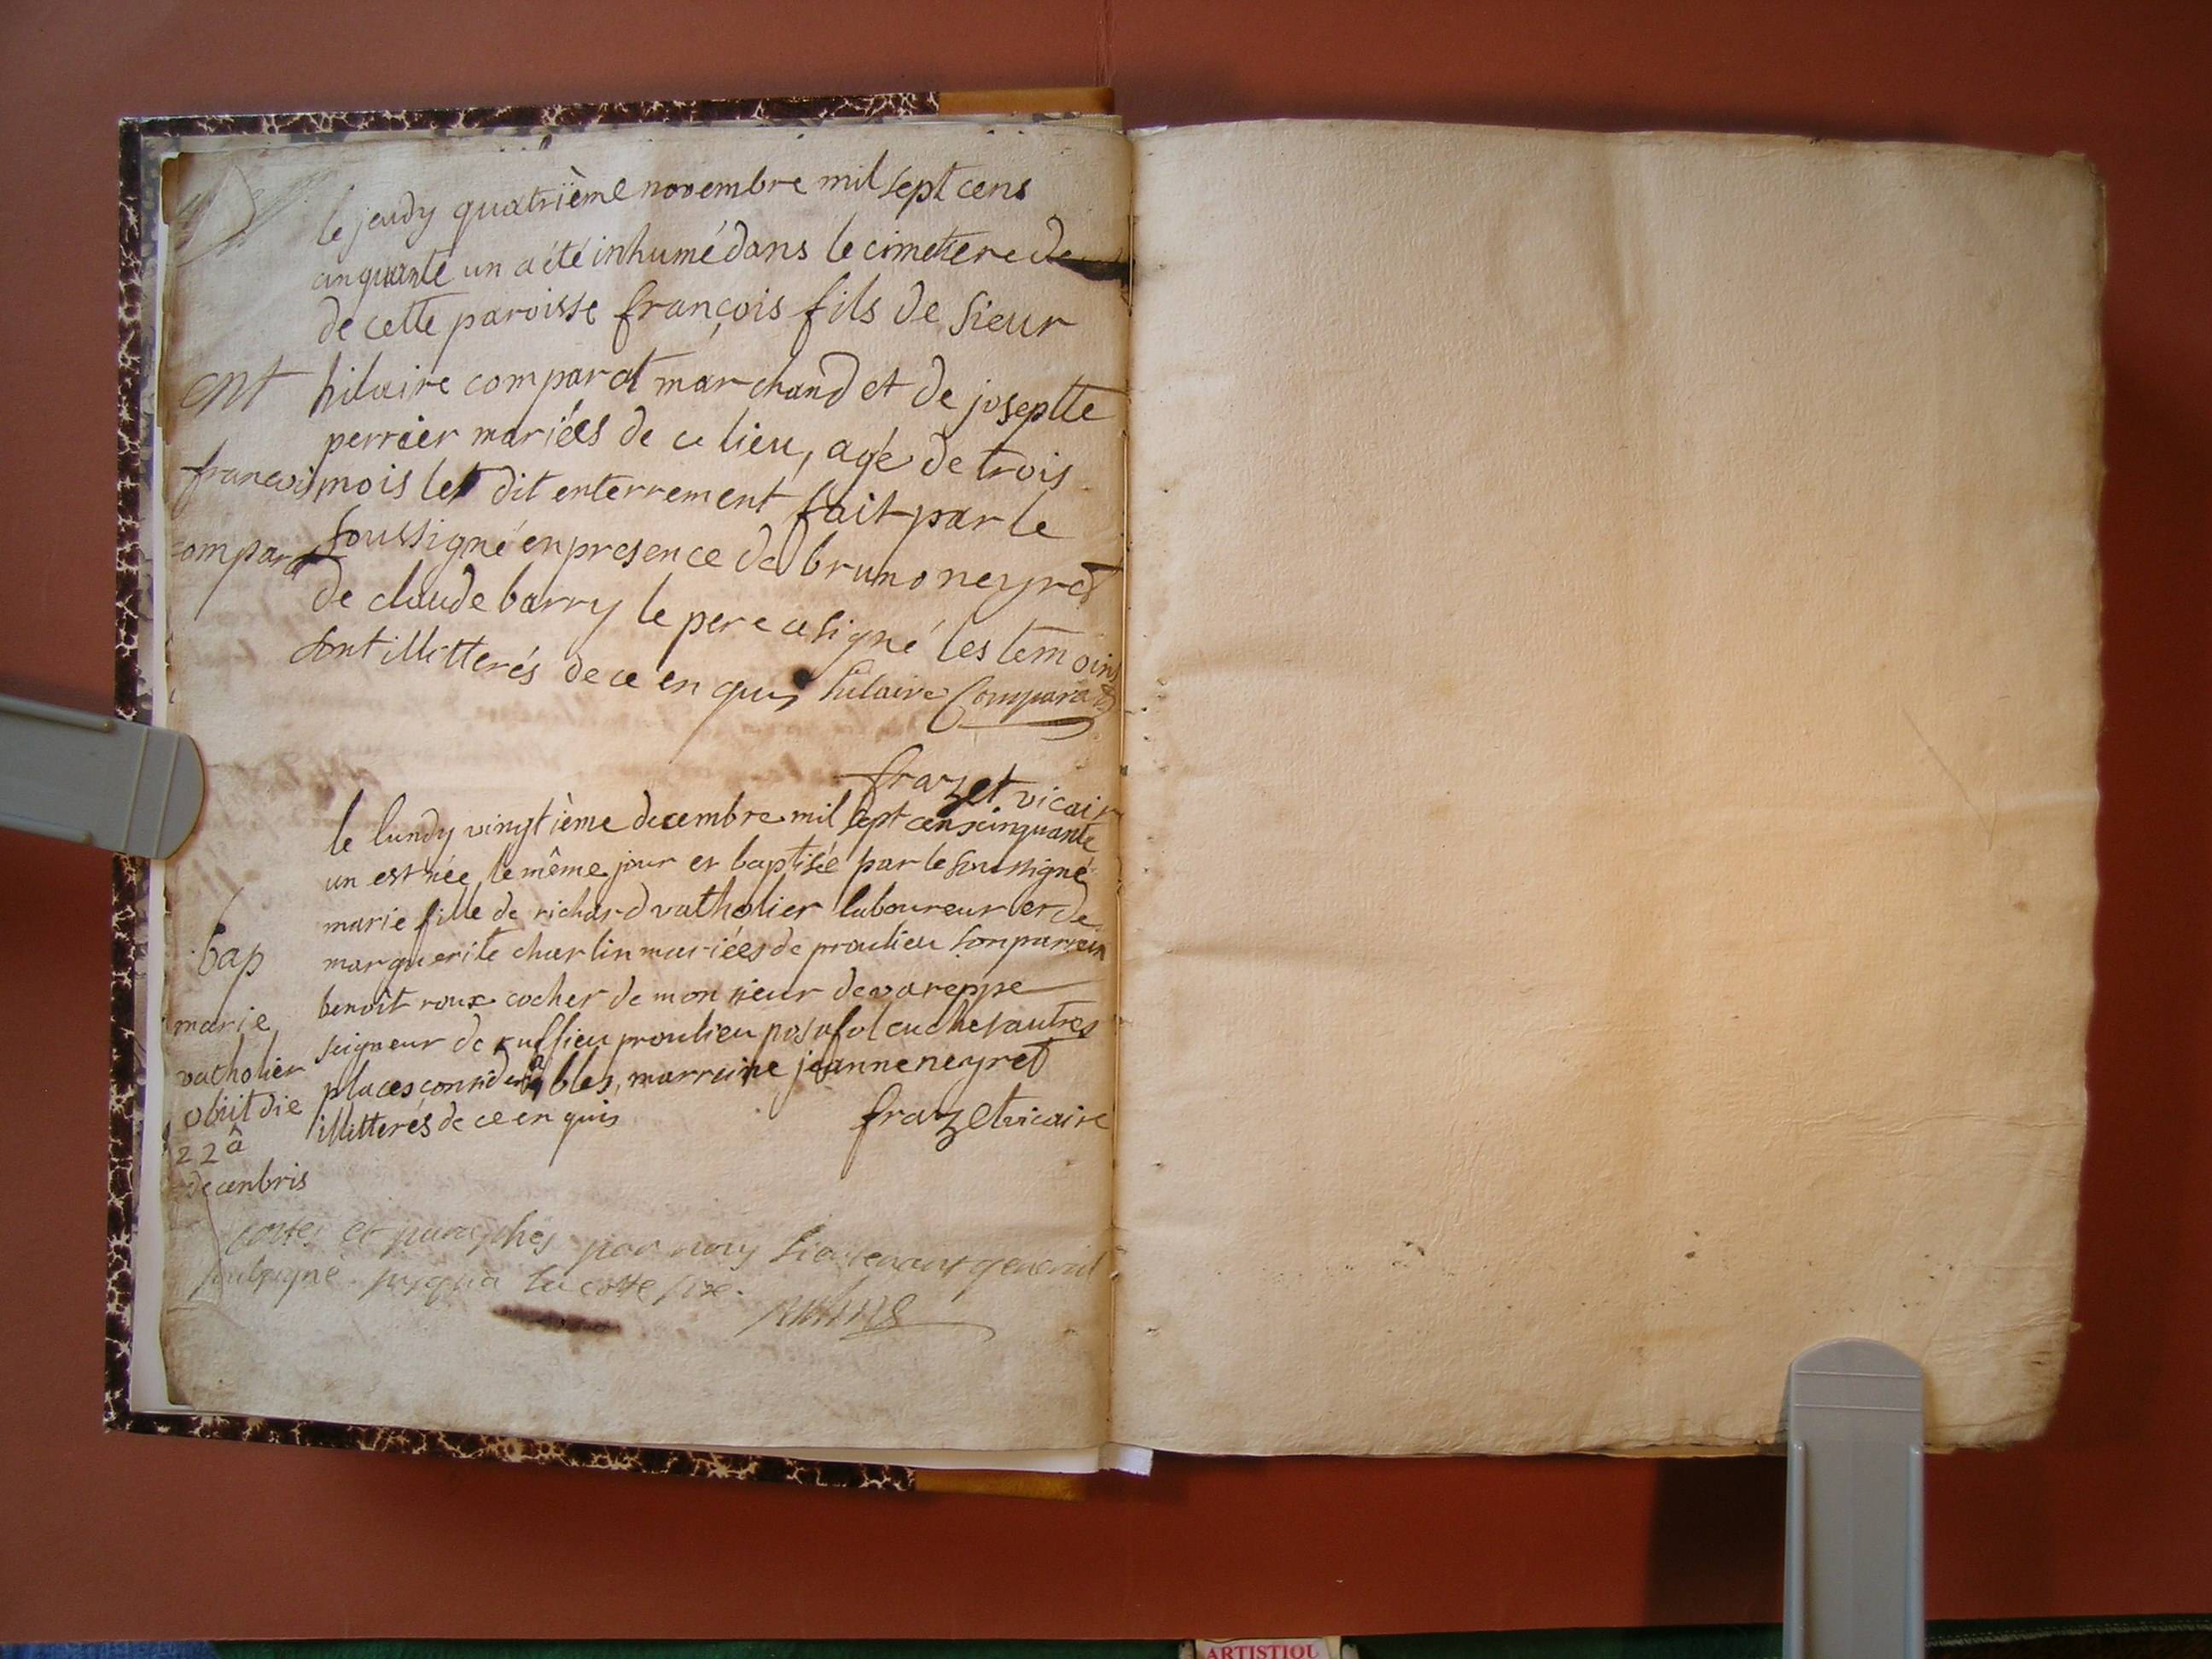 le jeudy quatrième novembre mil sept cens
cinquante un a été inhumé dans le cimetiere de
de cette paroisse françois fils de sieur
ent
hilaire comparat marchand et de josepte
perrier mariées de ce lieu, agé de trois
francois
mois le dit enterrement fait par le
comparat
soussigné en presence de bruno neyret
de claude barry le pere a signé les temoins
sont illitterés de ce enquis hilaire Comparat
frazet vicaire
le lundy vingtième decembre mil sept cens cinquante
un est née le même jour et baptisée par le soussigné
marie fille de richard vatholier laboureur et de
bap
marguerite charlin mariées de proulieu son parrein
benoît roux cocher de monsieur de vareppe
marie
seigneur de ruffieu proulieu posafol cuchet autres
vatholier
places considerables, marraine jeanne neyret
obiit die
illitterés de ce enquis frazet vicaire
22â
decenbris
cottes et paraphés par nous lieutenant general
soussigné jusqua la cotte six.